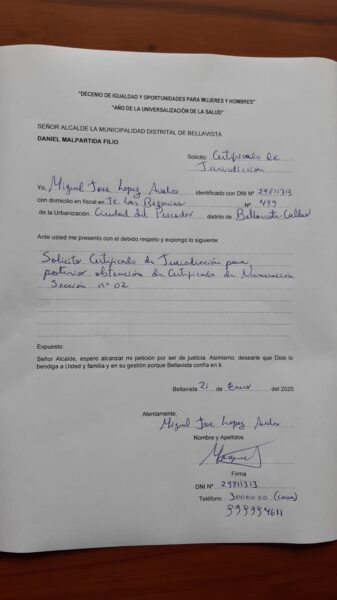 "DECENIO DE IGUALDAD Y OPORTUNIDADES PARA MUJERES Y HOMBRES"
"AÑO DE LA UNIVERSALIZACIÓN DE LA SALUD"
SEÑOR ALCALDE LA MUNICIPALIDAD DISTRITAL DE BELLAVISTA
DANIEL MALPARTIDA FILIO
Solicito: Certificado De
Jurisdicción
Yo, Miguel Jose Lopez Avalos identificado con DNI N° 29811313
con domicilio en fiscal en Jr. Las Begonias N° 499
de la Urbanización Ciudad del Pescador distrito de Bellavista-Callao
Ante usted me presento con el debido respeto y expongo lo siguiente:
Solicito Certificado de Jurisdicción para
posterior obtención de Certificado de Numeración
Sección n° 02
Expuesto:
Señor Alcalde, espero alcanzar mi petición por ser de justicia. Asimismo, desearle que Dios lo
bendiga a Usted y familia y en su gestión porque Bellavista confía en ti
Bellavista 21 de Enero del 2020
Atentamente,
Miguel Jose Lopez Avalos
Nombre y Apellidos
Firma
DNI N° 29811313
Teléfono 3000000 (casa)
999994611